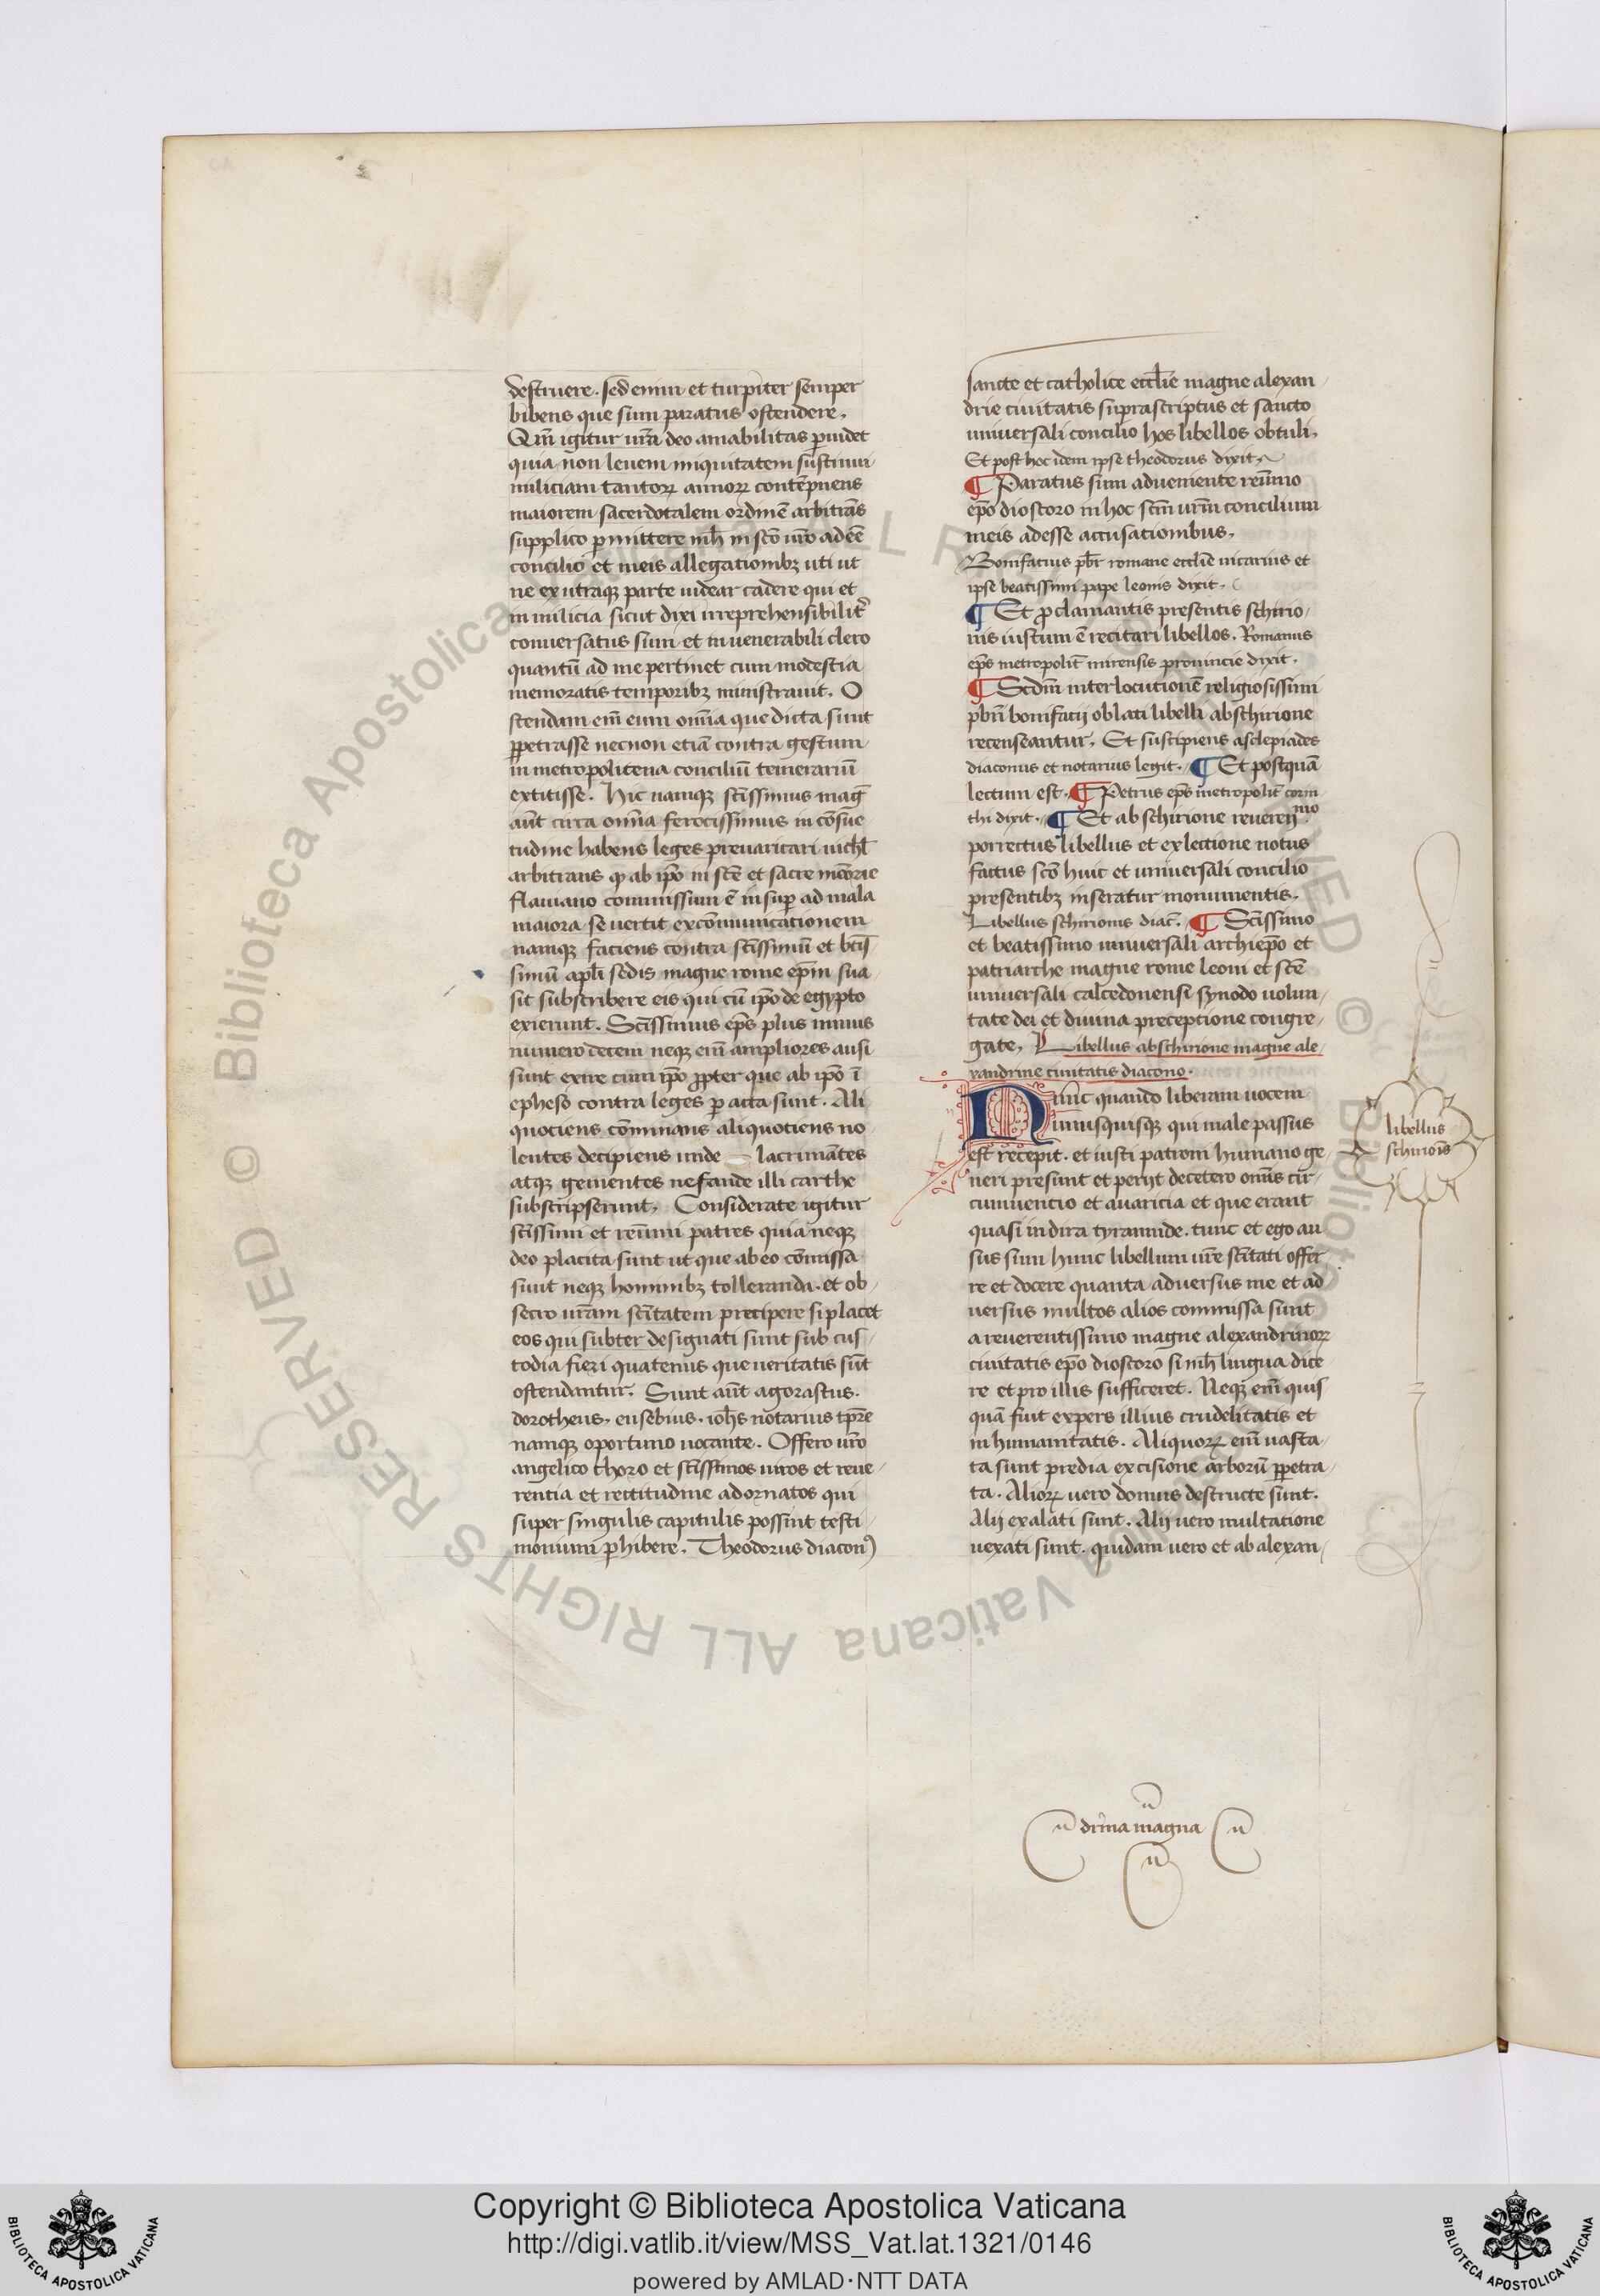 destruere. sed enim et turpiter semper
bibens que sum paratus ostendere.
Qm̄ igitur vr̄a deo amabilitas ꝑuidet
quia non leuem iniquitatem sustinui
miliciam tantoꝝ annoꝝ contēpnens
maiorem sacerdotalem ordinē arbitrās
supplico ꝑmittere mͥh in scō vr̄o adeē
concilio et meis allegationibꝫ uti ut
ne ex utraqꝫ parte uidear cadere qui et
in milicia sicut dixi irreprehensibilit̄
conuersatus sum et in venerabili clero
quantū ad me pertinet cum modestia
memoratis temporibꝫ ministrauit. O
stendam em̄ eum om̄ia que dicta sunt
ꝑpetrasse necnon etiā contra gestum
in metropolitena conciliū temerariū
extitisse. Hic namqꝫ sc̄issimus maḡ
aūt circa om̄ia ferocissimus in cōsue
tudine habens leges preuaricari nichl̄
arbitrans qͦ ab ip̄o in scē et sacre mēorie
flauiano commissum ē insuꝑ ad mala
maiora se vertit excōmunicationem
namqꝫ faciens contra sc̄issimū et btīs
simū apl̄i sedis magne rome ep̄m sua
sit subscribere eis qui cū ip̄o de egypto
exierunt. Sc̄issimus ep̄s plus minus
numero decem neqꝫ em̄ ampliores ausi
sunt exire cum ip̄o ꝓpter que ab ip̄o ī
epheso contra leges ꝑacta sunt. Ali
quotiens cōminans aliquotiens no
lentes decipiens unde lacrimātes
atqꝫ gementes nefande illi carthe
subscripserunt. Considerate igitur
sc̄issimi et reūmi patres quia neqꝫ
deo placita sunt ut que ab eo cōmissa
sunt neqꝫ hominibꝫ tolleranda. et ob
secro vr̄am sc̄itatem precipere si placet
eos qui subter designati sunt sub cus
todia fieri quatenus que ueritatis sūt
ostendantur. Sunt aūt agorastus.
dorotheus. eusebius. ioh̄s notarius tp̄re
namqꝫ oportuno uocante. Offero vr̄o
angelico choro et sc̄issimos uiros et reue
rentia et rectitudine adornatos qui
super singulis capitulis possint testi
monium ꝑhibere. Theodorus diacon⁹
sancte et catholice eccl̄ie magne alexan
drie ciuitatis suprascriptus et sancto
uniuersali concilio hos libellos obtuli.
Et post hec idem ipse theodorus dixit.
¶ Paratus sum adueniente reūmo
ep̄o dioscoro in hoc scm̄ vr̄m concilium
meis adesse accusationibus.
Bonifatius pb̄r romane eccl̄ie uicarius et
ipse beatissimi pape leonis dixit.
¶ Et ꝓclamantis presentis schirio
nis iustum ē recitari libellos. Romanus
ep̄s metropolit̄ mirensis prouincie dixit.
¶ Scdm̄ interlocutionē religiosissimi
pbr̄i bonifatij oblati libelli ab schirione
recenseantur. Et suscipiens asclepiades
diaconus et notarius legit. ¶ Et postquā
lectum est. ¶ Petrus ep̄s metropolit̄ corin
thi dixit. ¶ Et ab schirione reueren̄mo
porrectus libellus et ex lectione notus
factus scō huic et uniuersali concilio
presentibꝫ inseratur monumentis.
Libellus schirionis diac̄. ¶ Sc̄issimo
et beatissimo uniuersali archiep̄o et
patriarche magne rome leoni et scē
uniuersali calcedonensi synodo uolun
tate dei et diuina preceptione congre
gate. Libellus ab schirione magne ale
xandrine ciuitatis diacono.
Nunc quando liberam uocem
unusquisqꝫ qui male passus
est recepit. et iusti patroni humano ge
neri presunt et perijt decetero om̄is cir
cumuencio et auaricia et que erant
quasi in dira tyrannide. tunc et ego au
sus sum hunc libellum vr̄e sc̄itati offer
re et docere quanta aduersus me et ad
uersus multos alios commissa sunt
a reuerentissimo magne alexandrinoꝝ
ciuitatis ep̄o dioscoro si mͥh lingua dice
re et pro illis sufficeret. Neqꝫ em̄ quis
quā fuit expers illius crudelitatis et
inhumanitatis. Aliquoꝝ em̄ uasta
ta sunt predia excisione arborū ꝑpetra
ta. Alioꝝ uero domus destructe sunt.
Alij exalati sunt. Alij uero multatione
uexati sunt. quidam uero et ab alexan
libellus
schirioīs
drina magna
© Biblioteca Apostolica Vaticana ALL RIGHTS RESERVED
© Biblioteca Apostolica Vaticana ALL RIGHTS RESERVED
Copyright © Biblioteca Apostolica Vaticana
http://digi.vatlib.it/view/MSS_Vat.lat.1321/0146
powered by AMLAD·NTT DATA
BIBLIOTECA APOSTOLICA VATICANA
BIBLIOTECA APOSTOLICA VATICANA